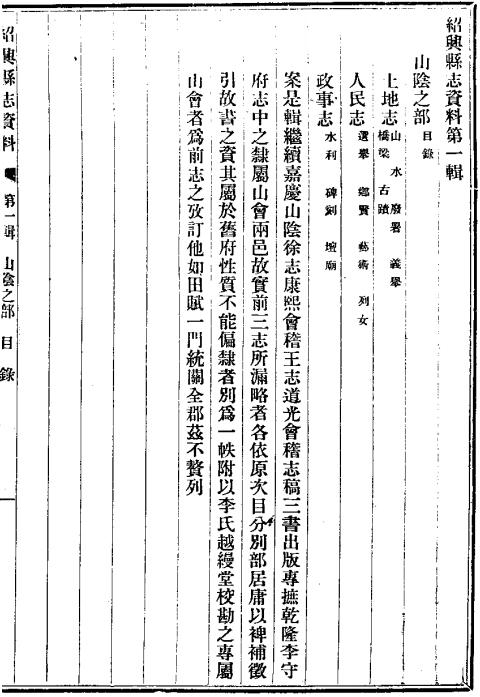 紹興縣志資料第一輯
山陰之部 目錄
土地志 山 水 廨署 義舉
橋梁 古蹟
人民志 選舉 鄉賢 藝術 列女
政事志 水利 碑刻 壇廟
案是輯繼續嘉慶山陰徐志康熙會稽王志道光會稽志稿三書出版專摭乾隆李守
府志中之隸屬山會兩邑故實前三志所漏略者各依原次目分別部居庸以裨補徵
引故書之資其屬於舊府性質不能偏隸者別爲一帙附以李氏越縵堂校勘之專屬
山會者爲前志之攷訂他如田賦一門統關全郡茲不贅列
紹興縣志資料 第一輯 山陰之部 目錄